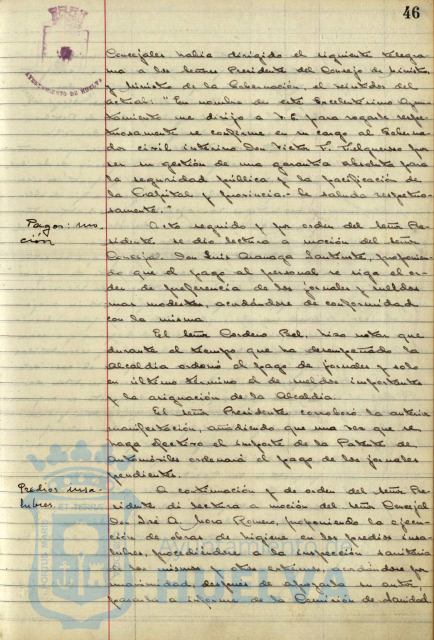 46
AYUNTAMIENTO DE HUELVA
Concejales había dirigido el siguiente telegra-
ma a los señores Presidente del Consejo de Ministros
y Ministro de la Gobernación, el veintidos del
actual: "En nombre de este Excelentísimo Ayun-
tamiento me dirijo a V.E. para rogarle respe-
tuosamente se confirme en su cargo al Goberna-
dor civil interino Don Víctor
ser su gestión de una garantía absoluta para
la seguridad pública y la pacificación de
la Capital y provincia.- Le saluda respetuo-
samente."
Pagos: mo-
ción
Acto seguido y por orden del señor Pre-
sidente se dio lectura a moción del señor
Concejal Don Luis proponien-
do que el pago al personal se siga el or-
den de preferencia de los jornales y sueldos
mas modestos, acordándose de conformidad
con la misma.
El señor Cordero Bel, hizo notar que
durante el tiempo que ha desempeñado la
Alcaldía ordenó el pago de jornales y solo
en último término el de sueldos importantes
y la asignación de la Alcaldía.
El señor Presidente corroboró la anterior
manifestación, añadiendo que una vez que se
haga efectivo el importe de la Patente de
Automóviles ordenará el pago de los jornales
pendientes.
Predios insa-
lubres.
A continuación y de orden del señor Pre-
sidente di lectura a moción del señor Concejal
Don José A. Mora Romero, proponiendo la ejecu-
ción de obras de higiene en los predios insa-
lubres, procediéndose a la inspección sanitaria
de los mismos y otros extremos, acordándose por
unanimidad, después de apoyarla su autor,
pasarla a informe de la Comisión de Sanidad
HUELVA